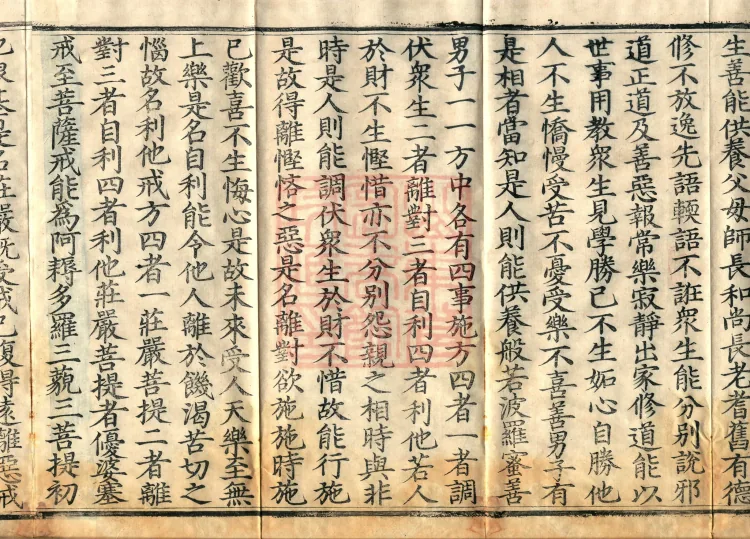 生善能供養父母師長和尚長老耆舊有德
修不放逸先語輭語不誑衆生能分別說邪
道正道及善惡報常樂寂靜出家修道能以
世事用教衆生見學勝己不生妬心自勝他
人不生憍慢受苦不憂受樂不喜善男子有
是相者當知是人則能供養般若波羅蜜善
男子一一方中各有四事施方四者一者調
伏衆生二者離對三者自利四者利他若人
於財不生慳惜亦不分別怨親之相時與非
時是人則能調伏衆生於財不惜故能行施
是故得離慳悋之惡是名離對欲施施時施
已歡喜不生悔心是故未來受人天樂至無
上樂是名自利能令他人離於饑渴苦切之
惱故名利他戒方四者一莊嚴菩提二者離
對三者自利四者利他莊嚴菩提者優婆塞
戒至菩薩戒能為阿耨多羅三藐三菩提初
根基是名莊嚴既受戒已復得遠離惡戒